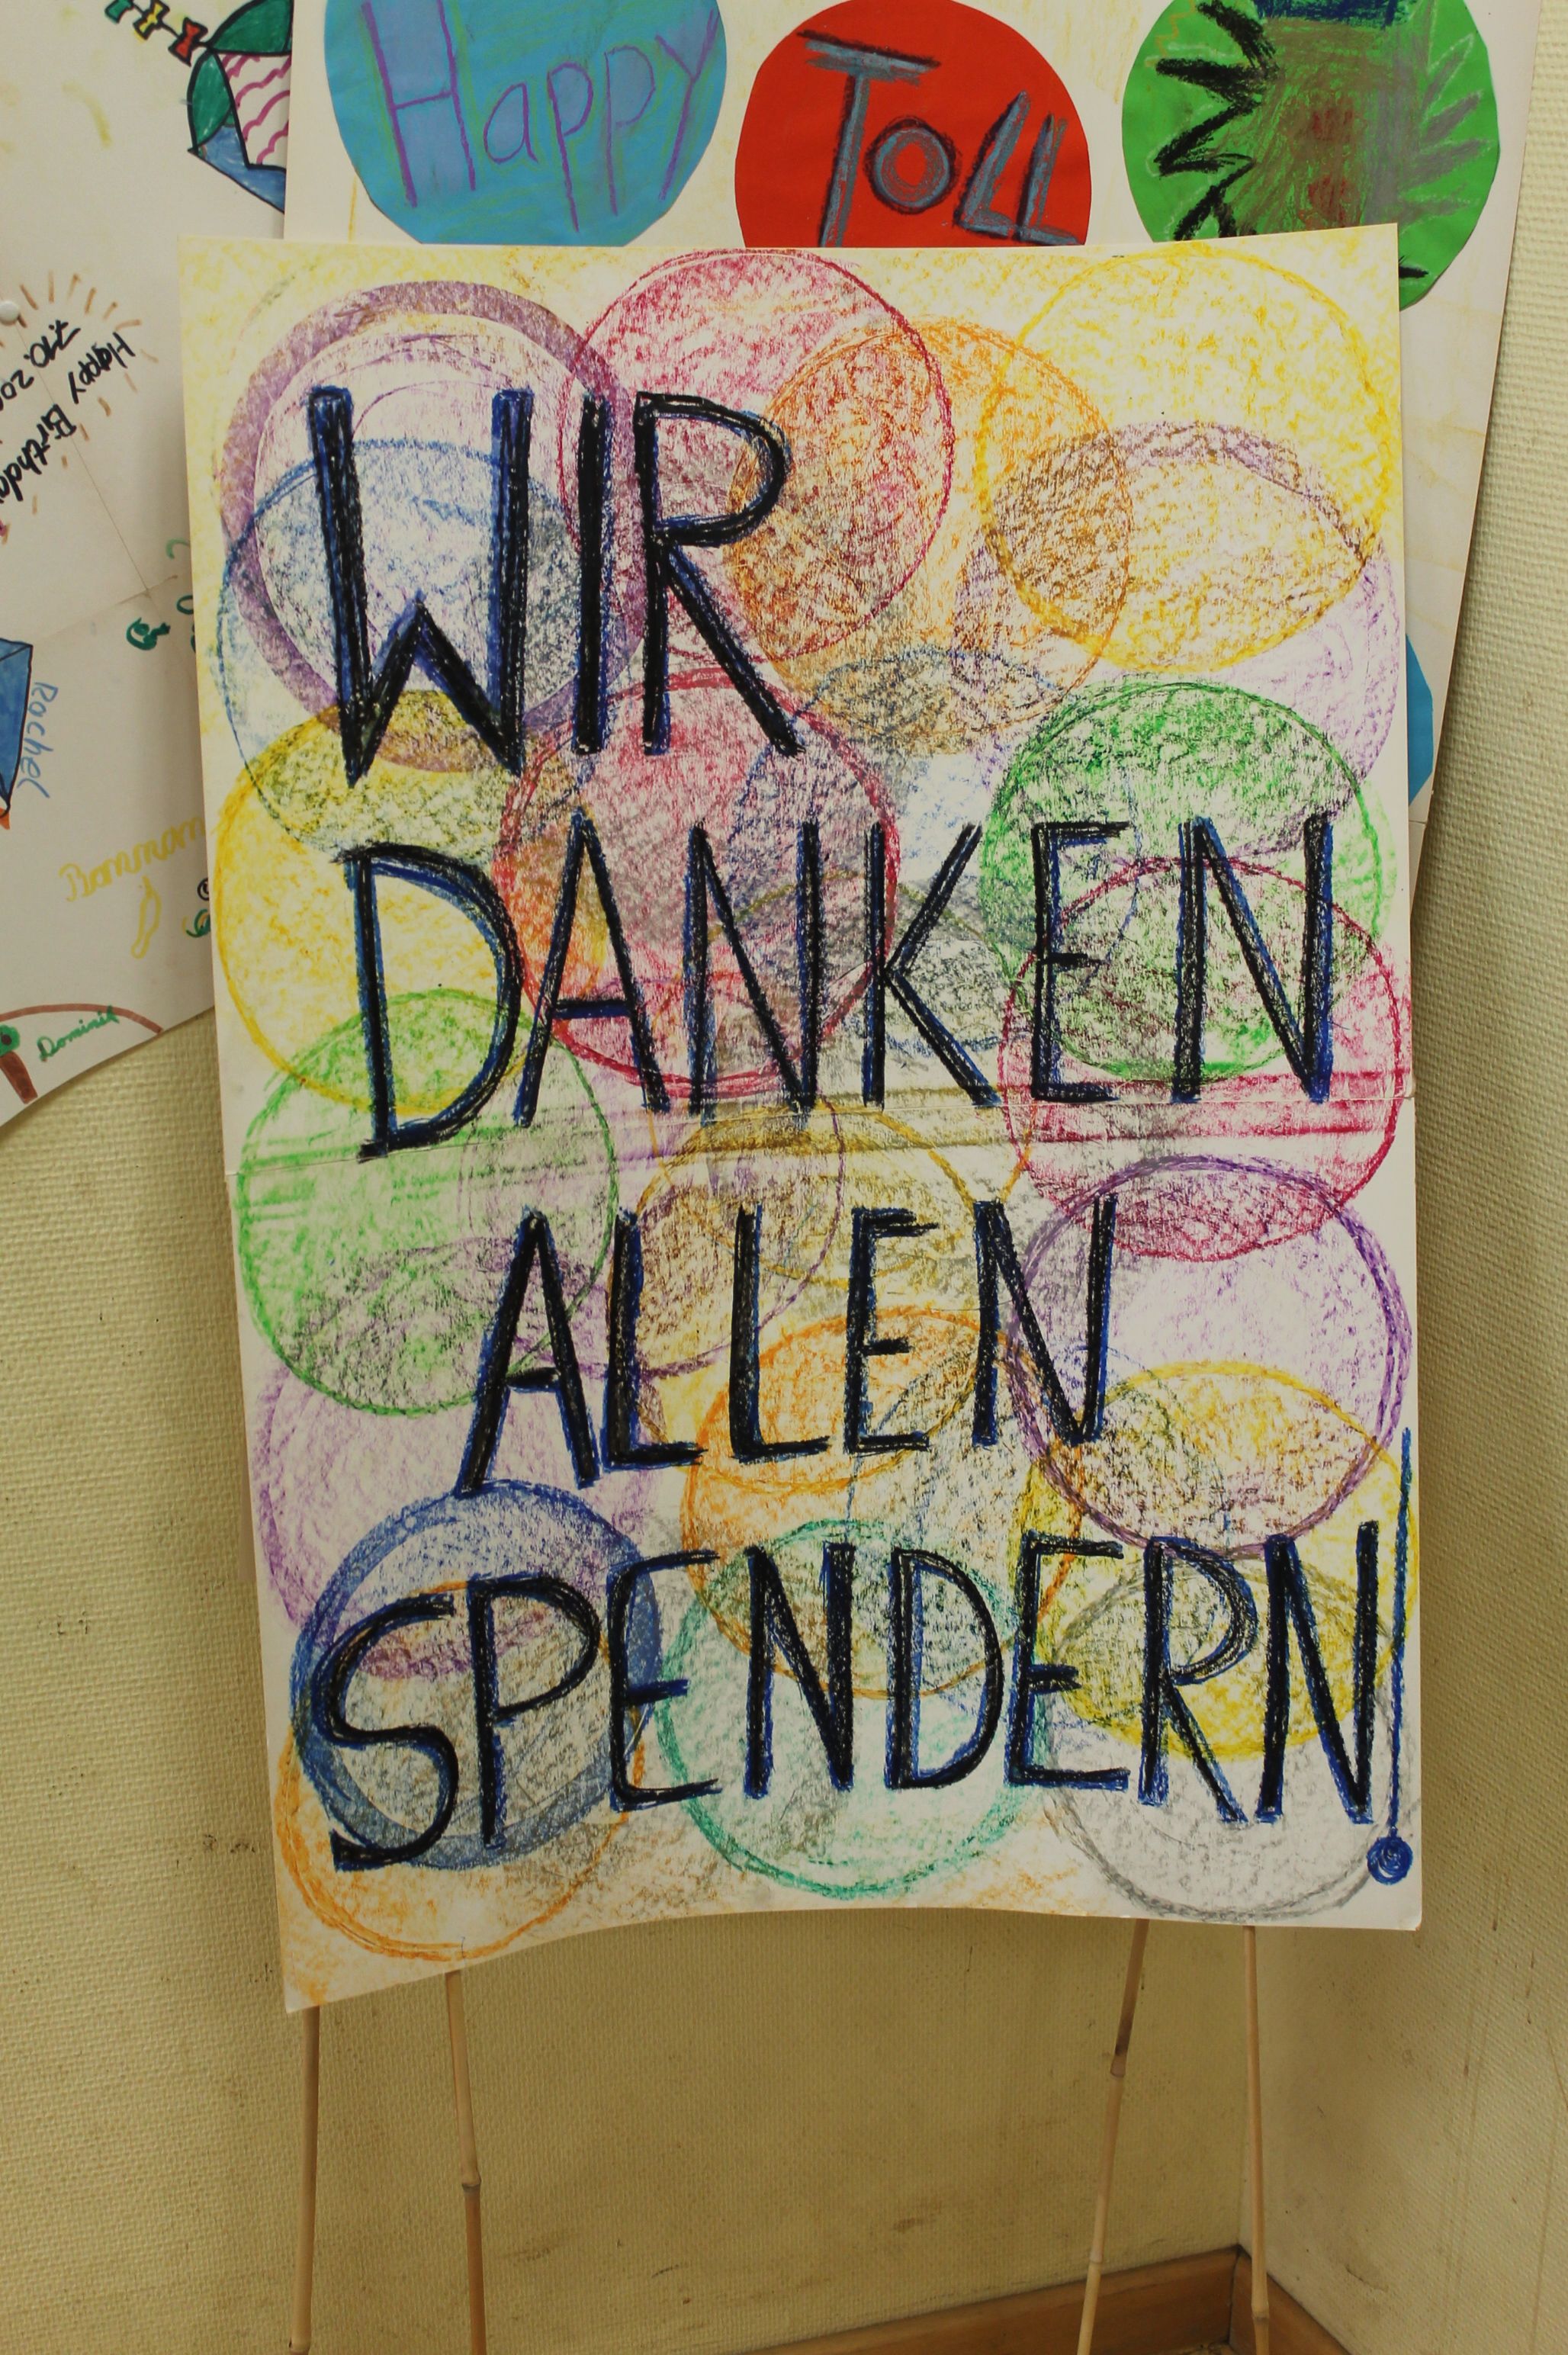 Happy
TOLL
Happy Birthday
WIR
DANKEN
ALLEN
SPENDERN!
Rachel
Dominik